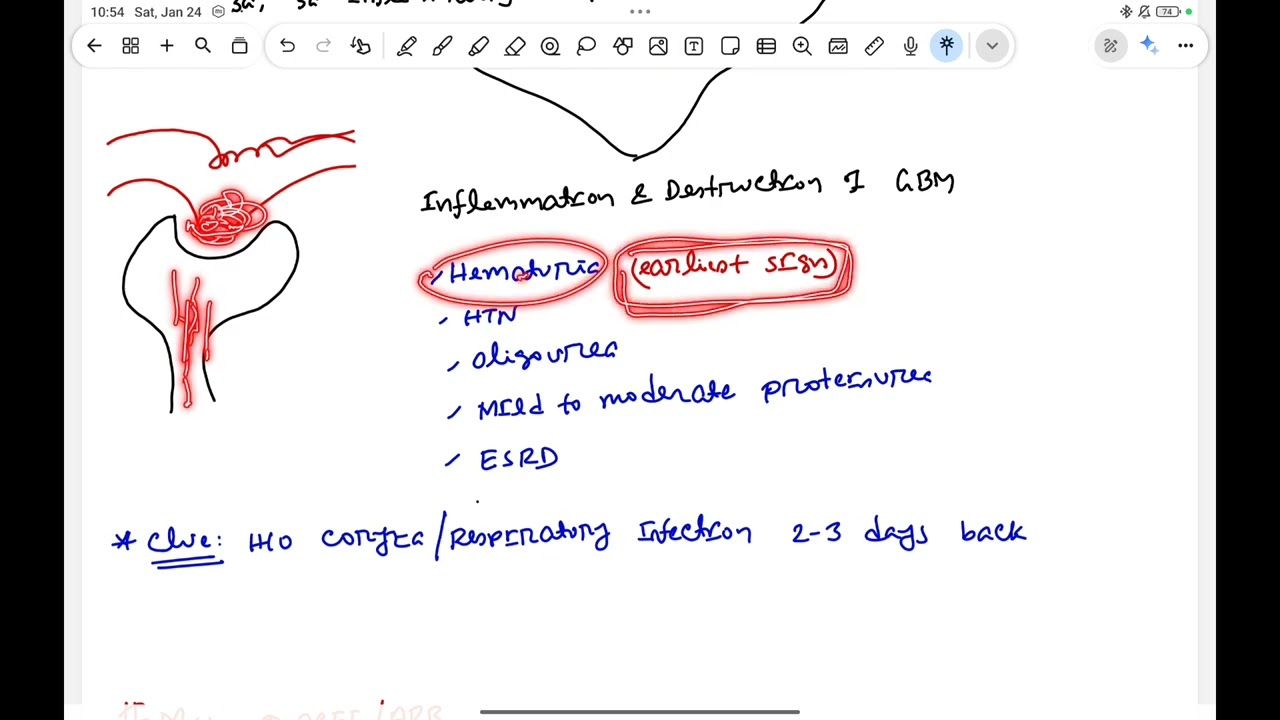 10:54 Sat, Jan 24
74
Inflammation & Destruction of GBM
✓ Hematuria (earliest sign)
✓ HTN
✓ oligourea
✓ Mild to moderate proteinurea
✓ ESRD
* Clue: H/O coryza/Respiratory Infection 2-3 days back